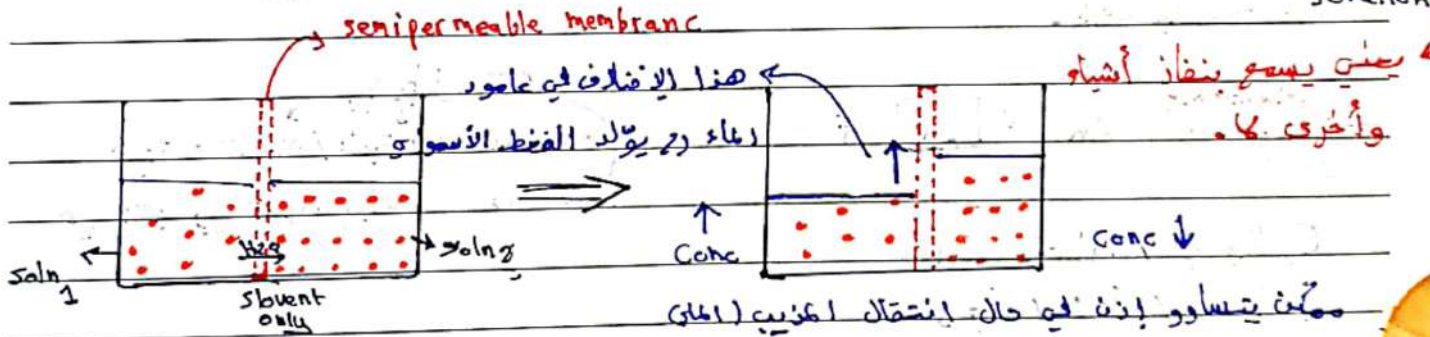 semipermeable membranc
يعني يسمح بنفاذ أشياء
وأخرى لا.
هذا الإختلاف في عامود
الماء رح يولّد الضغط الأسموزي
H2O
soln 1
soln 2
Slovent
only
Conc
Conc
ممكن يتساوو إذن في حال انتقال المذيب (الماء)